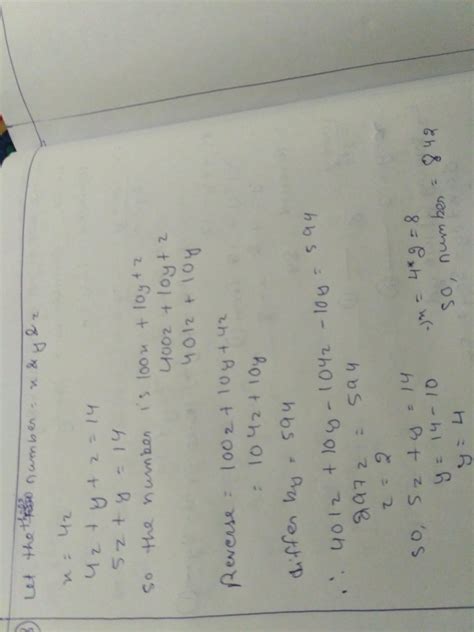 Let the three number = x & y & z
x = 4z
4z + y + z = 14
5z + y = 14
so the number is 100x + 10y + z
400z + 10y + z
401z + 10y
Reverse = 100z + 10y + 4z
= 104z + 10y
differ by = 594
∴ 401z + 10y - 104z - 10y = 594
297z = 594
z = 2
so, 5z + y = 14
y = 14 - 10
y = 4
∴ x = 4*2 = 8
so, number = 842